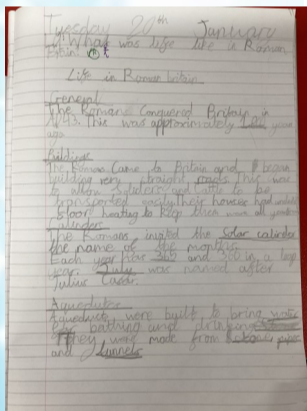 Tuesday 20th January
What was life like in Roman
Britain?
Life in Roman britain
General
The Romans Conquered Britain in
A.D 43. This was approximately years
ago
Buildings
The Romans Came to Britain and began
building very straight roads This was
to allow Soldiers and Cattle to be
transported easily Their houses had
floor heating to keep them warm all year
Calinders
The Romans invited the solar calinder
the name of the months.
Each year has 365 and 366 in a leap
year. July was named after
Julius Caeser.
Aqueduts
Aqueducts were built to bring water
for bathing and drinking
They were made from pipes
and tunnels